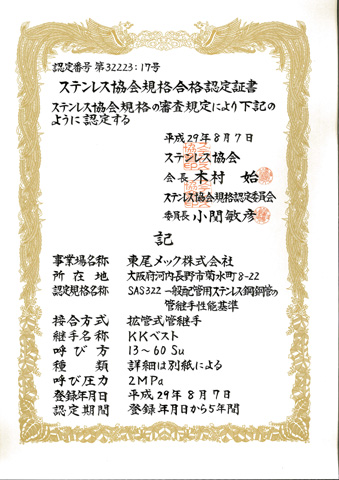 認定番号 第32223:17号
ステンレス協会規格合格認定証書
ステンレス協会規格の審査規定により下記の
ように認定する
平成29年8月7日
ステンレス協会
会長 木村 始
ステンレス協会規格認定委員会
委員長 小関敏彦
記
事業場名称 東尾メック株式会社
所在地 大阪府河内長野市菊水町8-22
認定規格名称 SAS322 一般配管用ステンレス鋼鋼管の
管継手性能基準
接合方式 拡管式管継手
継手名称 KKベスト
呼び方 13~60 Su
種類 詳細は別紙による
呼び圧力 2MPa
登録年月日 平成29年8月7日
認定期間 登録年月日から5年間